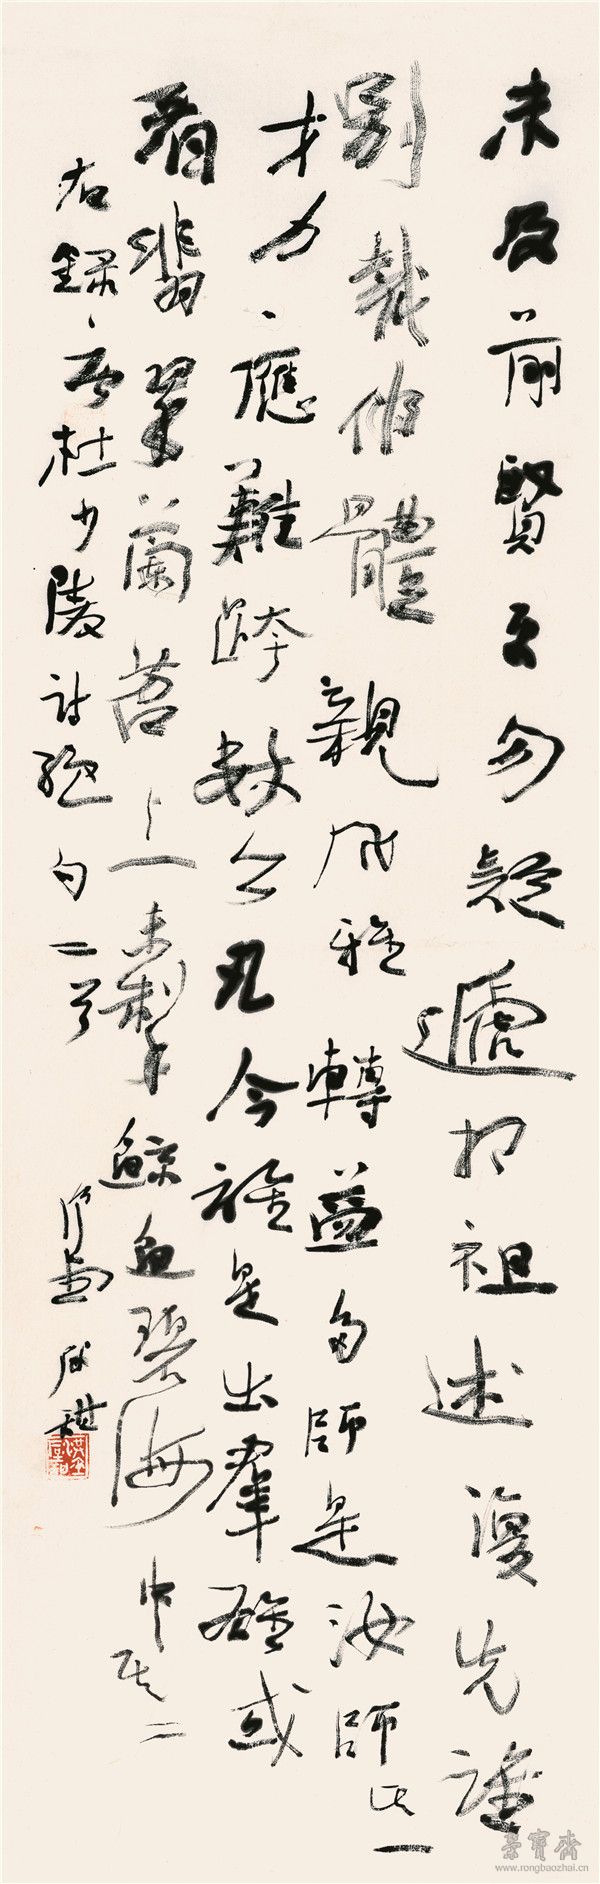 未及前賢更勿疑遞相祖述復先誰
別裁偽體親風雅轉益多師是汝師其一
才力應難跨數公凡今誰是出群雄或
看翡翠蘭苕上未掣鯨魚碧海中其二
右錄杜少陵詩絕句二首
榮寶齋
www.rongbaozhai.cn